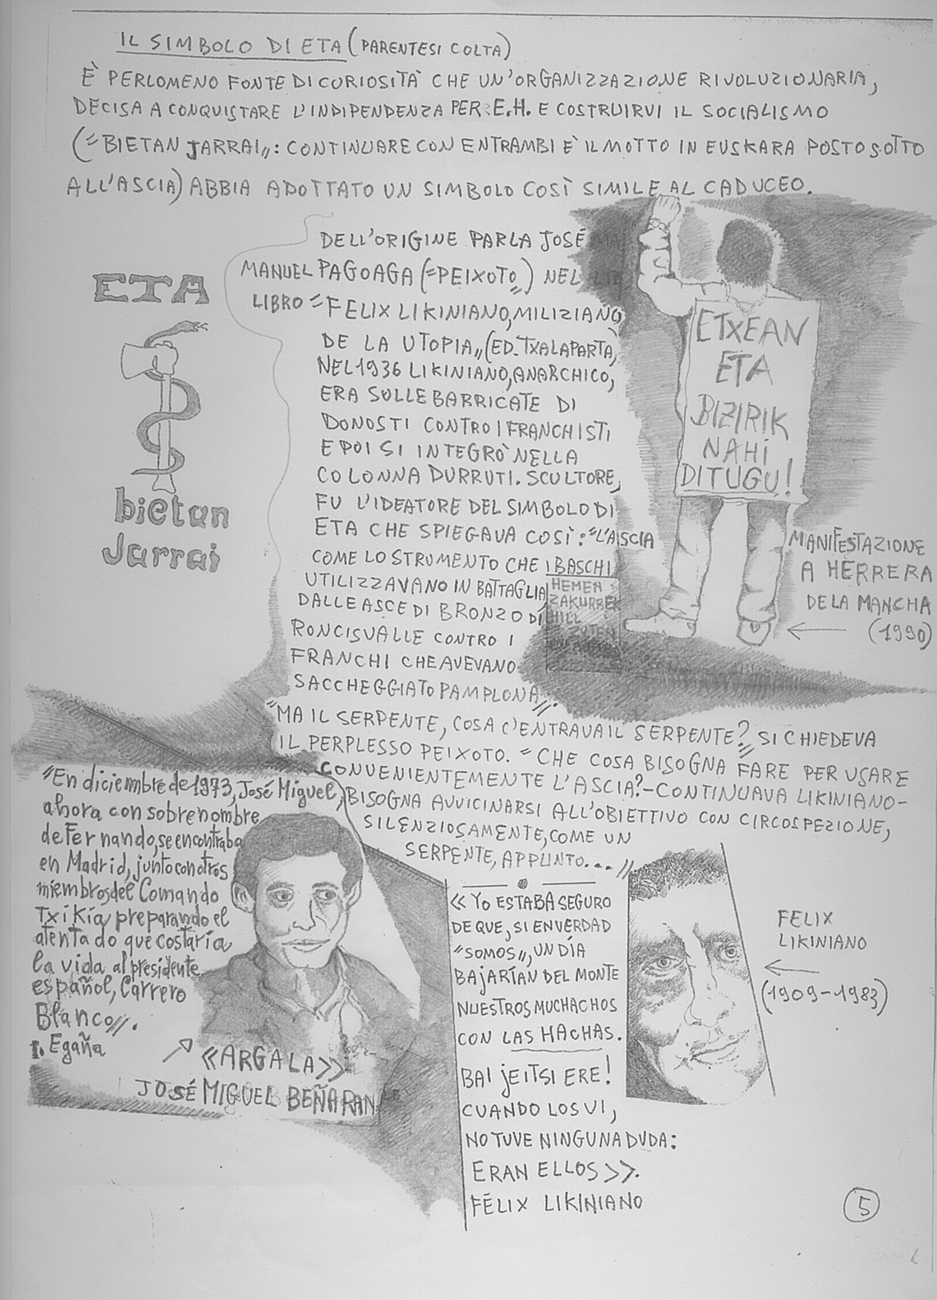 IL SIMBOLO DI ETA (PARENTESI COLTA)
È PERLOMENO FONTE DI CURIOSITÀ CHE UN'ORGANIZZAZIONE RIVOLUZIONARIA,
DECISA A CONQUISTARE L'INDIPENDENZA PER E.H. E COSTRUIRVI IL SOCIALISMO
("BIETAN JARRAI": CONTINUARE CON ENTRAMBI È IL MOTTO IN EUSKARA POSTO SOTTO
ALL'ASCIA) ABBIA ADOTTATO UN SIMBOLO COSÌ SIMILE AL CADUCEO.
DELL'ORIGINE PARLA JOSÉ
MANUEL PAGOAGA ("PEIXOTO") NEL
LIBRO "FELIX LIKINIANO, MILIZIANO
DE LA UTOPIA" (ED. TXALAPARTA)
NEL 1936 LIKINIANO, ANARCHICO,
ERA SULLE BARRICATE DI
DONOSTI CONTRO I FRANCHISTI
E POI SI INTEGRÒ NELLA
COLONNA DURRUTI. SCULTORE,
FU L'IDEATORE DEL SIMBOLO DI
ETA CHE SPIEGAVA COSÌ: "L'ASCIA
COME LO STRUMENTO CHE I BASCHI
UTILIZZAVANO IN BATTAGLIA
DALLE ASCE DI BRONZO DI
RONCISVALLE CONTRO I
FRANCHI CHE AVEVANO
SACCHEGGIATO PAMPLONA".
"MA IL SERPENTE, COSA C'ENTRAVA IL SERPENTE?" SI CHIEDEVA
IL PERPLESSO PEIXOTO. "CHE COSA BISOGNA FARE PER USARE
CONVENIENTEMENTE L'ASCIA? - CONTINUAVA LIKINIANO -
BISOGNA AVVICINARSI ALL'OBIETTIVO CON CIRCOSPEZIONE,
SILENZIOSAMENTE, COME UN
SERPENTE, APPUNTO..."
ETA
bietan
Jarrai
ETXEAN
ETA
BIZIRIK
NAHI
DITUGU!
HEMEN
ZAKURREK
HILL
MANIFESTAZIONE
A HERRERA
DE LA MANCHA
(1990)
"En diciembre de 1973, José Miguel,
ahora con sobrenombre
de Fernando, se encontraba
en Madrid, junto con otros
miembros del Comando
Txikia, preparando el
atentado que costaría
la vida al presidente
español, Carrero
Blanco".
I. Egaña
«ARGALA»
JOSÉ MIGUEL BEÑARAN
«YO ESTABA SEGURO
DE QUE, SI EN VERDAD
"SOMOS", UN DÍA
BAJARÍAN DEL MONTE
NUESTROS MUCHACHOS
CON LAS HACHAS.
BAI JEITSI ERE!
CUANDO LOS VI,
NO TUVE NINGUNA DUDA:
ERAN ELLOS».
FÉLIX LIKINIANO
FELIX
LIKINIANO
(1909-1983)
5